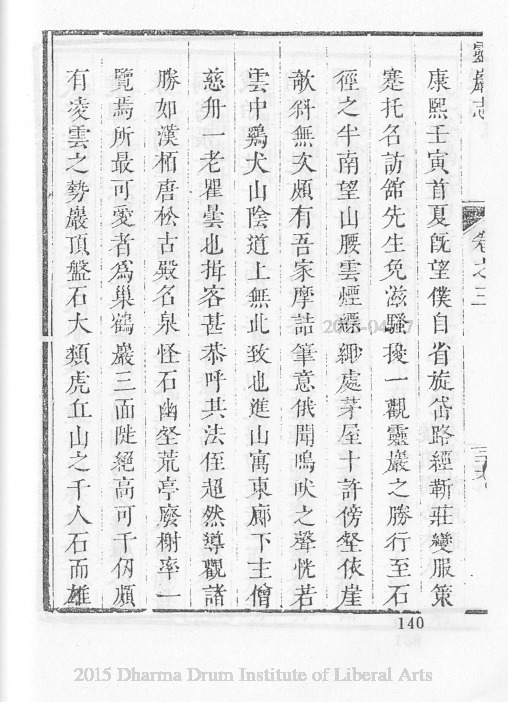 靈巖志
卷之三
康熙壬寅首夏旣望僕自省旋岱路經靳莊變服策
蹇托名訪舘先生免滋騷擾一觀靈巖之勝行至石
徑之半南望山腰雲煙縹緲處茅屋十許傍壑依崖
欹斜無次頗有吾家摩詰筆意俄聞鳴吠之聲恍若
雲中鷄犬山陰道上無此致也進山寓東廊下主僧
慈舟一老瞿曇也揖客甚恭呼其法侄超然導觀諸
勝如漢栢唐松古殿名泉怪石幽壑荒亭廢榭率一
覽焉所最可愛者爲巢鶴巖三面陡絕高可千仞頗
有凌雲之勢巖頂盤石大類虎丘山之千人石而雄
140
2015 Dharma Drum Institute of Liberal Arts